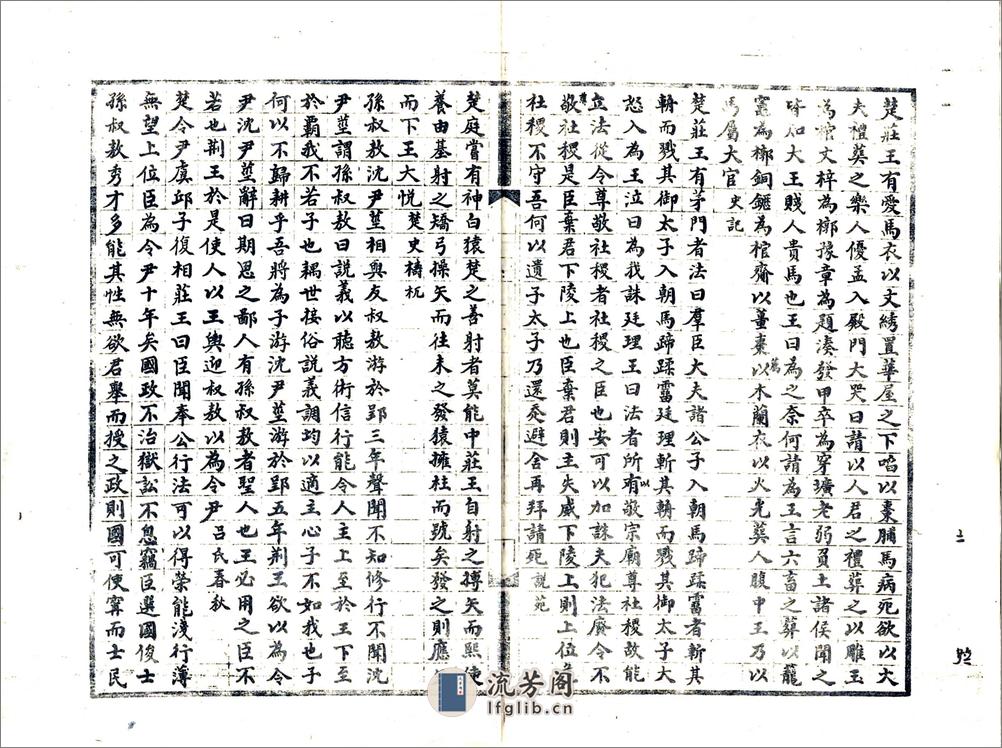 楚莊王有愛馬衣以文綉置華屋之下啗以棗脯馬病死欲以大
夫禮葬之樂人優孟入殿門大哭曰請以人君之禮葬之以雕玉
為棺文梓為槨豫章為題湊發甲卒為穿壙老弱負土諸侯聞之
皆知大王賤人貴馬也王曰為之奈何請為王言六畜之葬以壠
竈為槨銅鑊為棺齊以薑棗薦以木蘭衣以火光葬人腹中王乃以
馬屬大官 史記
楚莊王有茅門者法曰羣臣大夫諸公子入朝馬蹄蹂霤者斬其
輈而戮其御太子入朝馬蹄蹂霤廷理斬其輈而戮其御太子大
怒入為王泣曰為我誅廷理王曰法者所以有敬宗廟尊社稷故能
立法從令尊敬社稷者社稷之臣也安可以加誅夫犯法廢令不
尊敬社稷是臣棄君下陵上也臣棄君則主失威下陵上則上位危
社稷不守吾何以遺子太子乃還走避舍再拜請死 說苑
楚庭嘗有神白猿楚之善射者莫能中莊王自射之搏矢而熙使
養由基射之矯弓操矢而往未之發猿擁柱而號矣發之則應
而下王大悦 楚史檮杌
孫叔敖沈尹莖相與友叔敖游於郢三年聲聞不知修行不聞沈
尹莖謂孫叔敖曰説義以聽方術信行能令人主上至於王下至
於霸我不若子也耦世接俗説義調均以適主心子不如我也子
何以不歸耕乎吾將為子游沈尹莖游於郢五年荆王欲以為令
尹沈尹莖辭曰期思之鄙人有孫叔敖者聖人也王必用之臣不
若也荆王於是使人以王輿迎叔敖以為令尹 吕氏春秋
楚令尹虞邱子復相莊王曰臣聞奉公行法可以得榮能淺行薄
無望上位臣為令尹十年矣國政不治獄訟不息竊臣選國俊士
孫叔敖秀才多能其性無欲君舉而授之政則國可使寧而士民
流芳阁
lfglib.cn